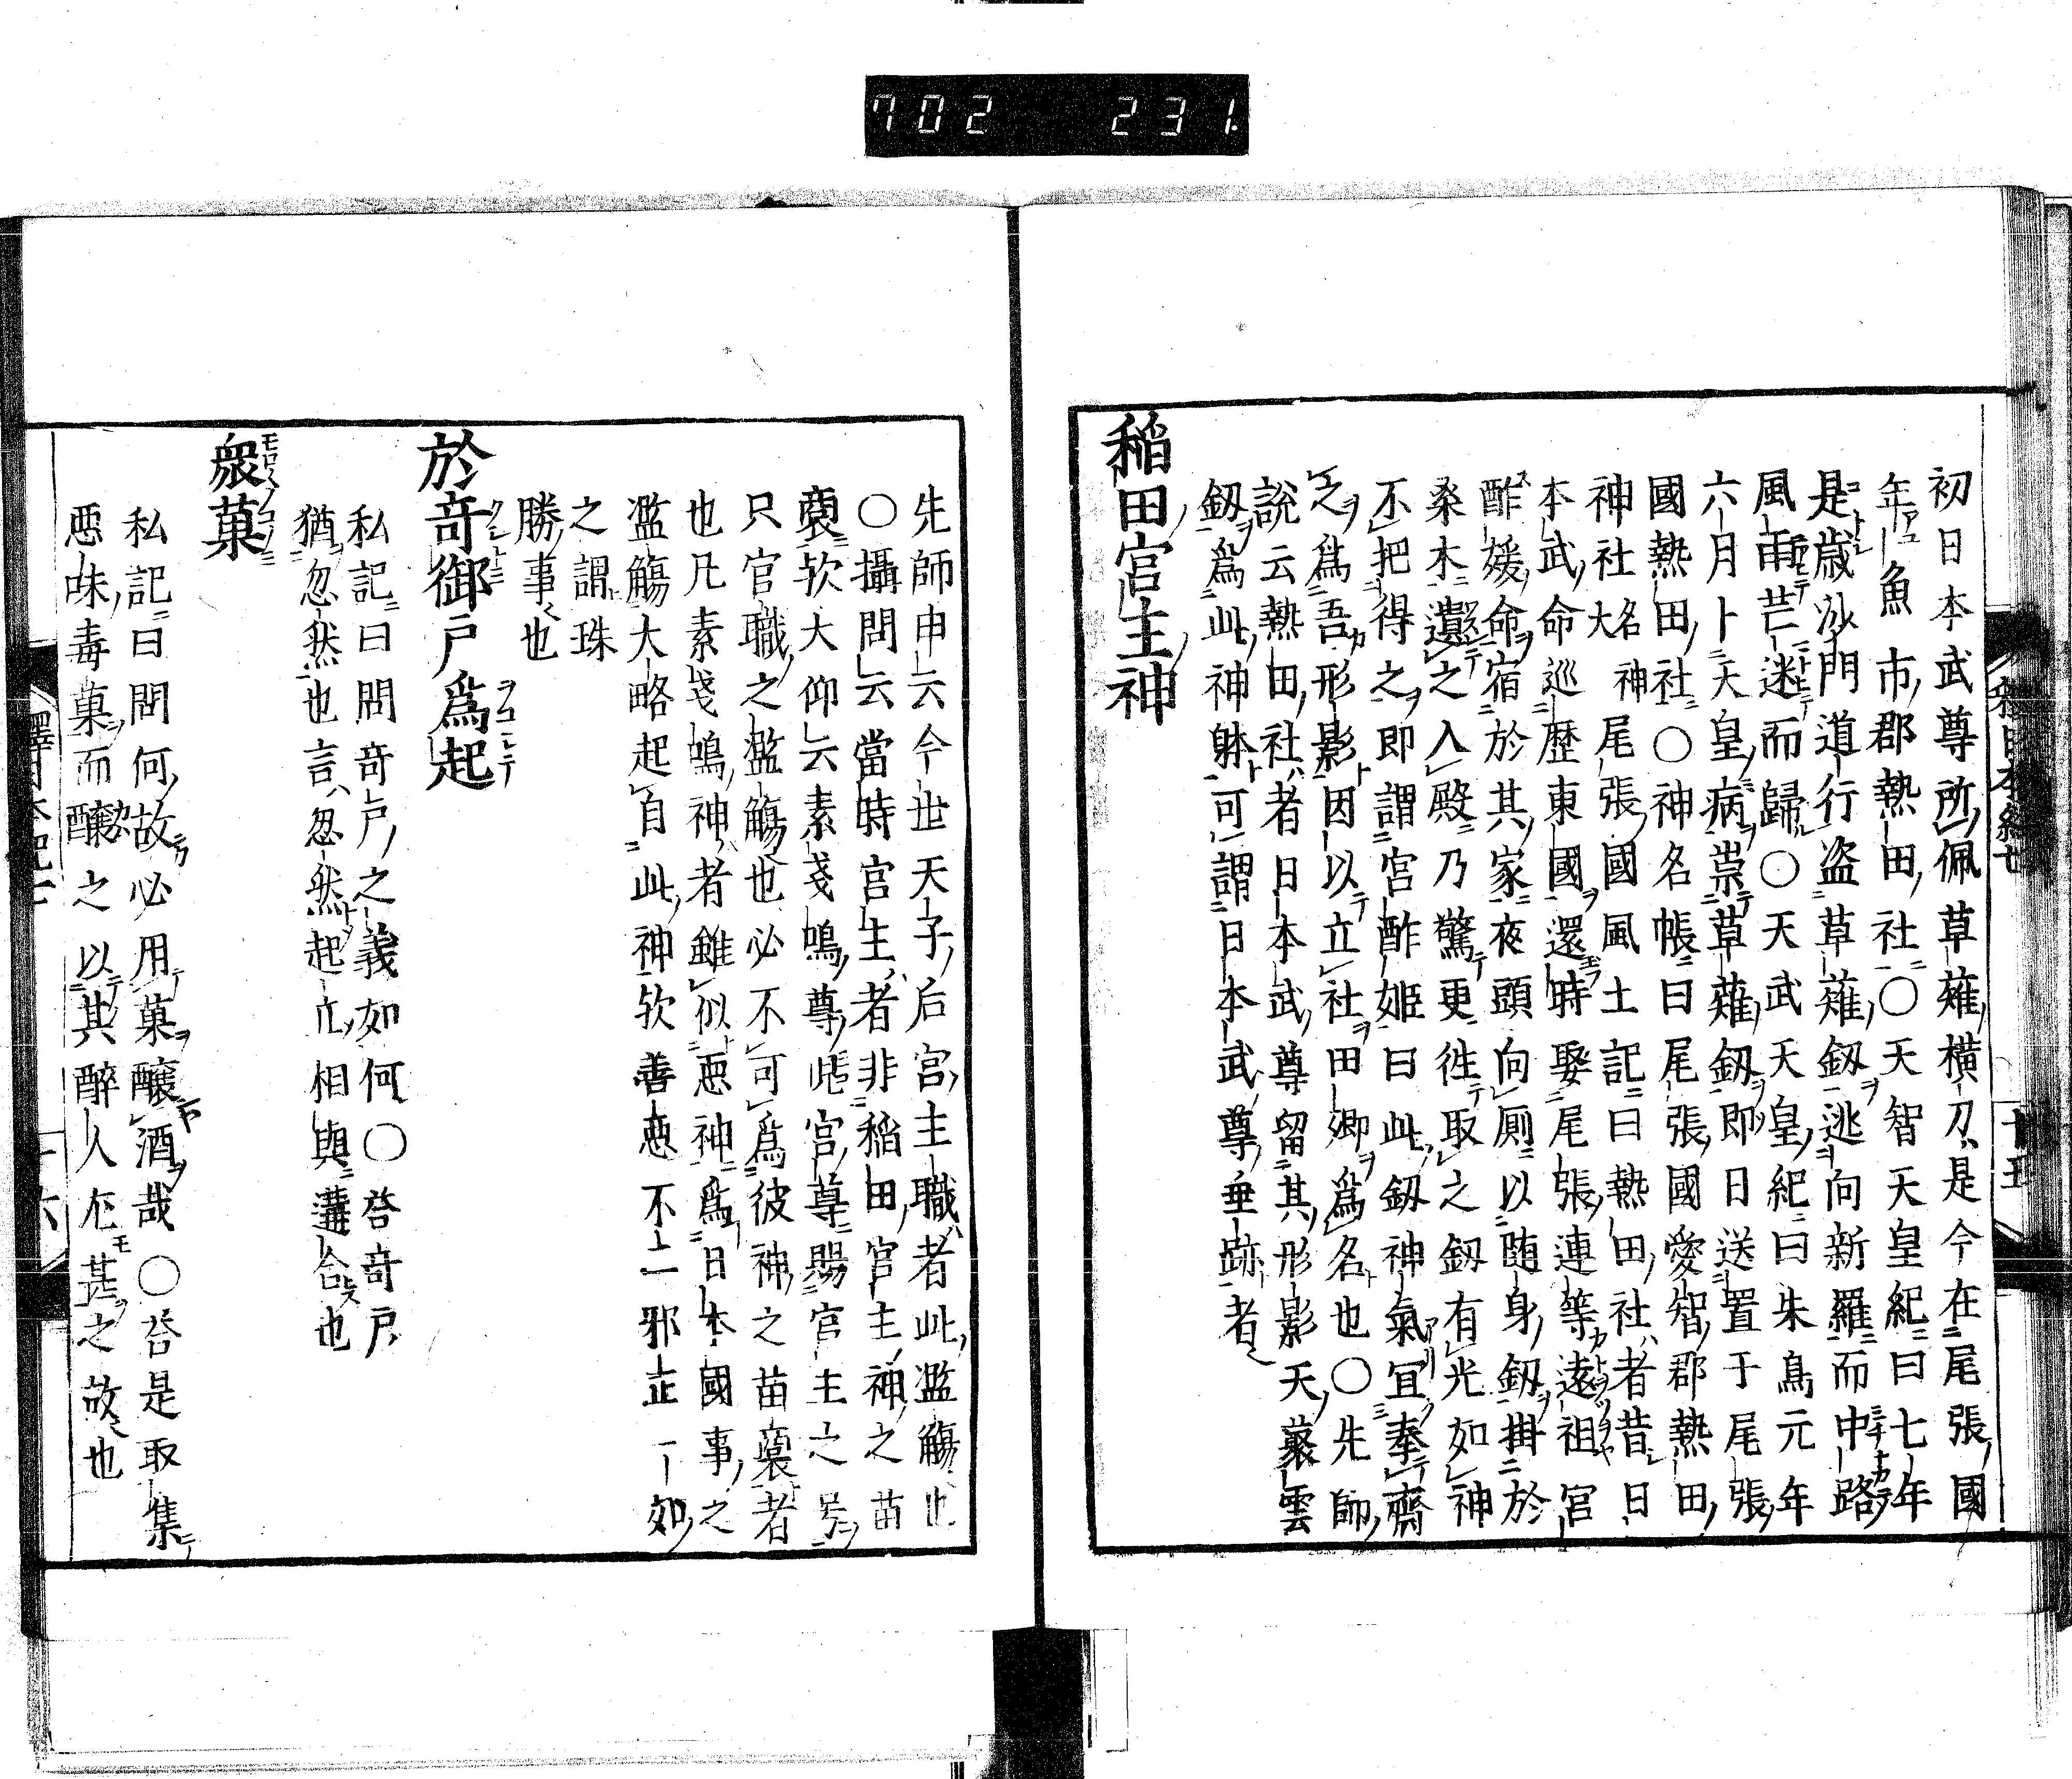 702 231.
初日本武尊所佩草薙横刀是今在尾張國
年魚市郡熱田社○天智天皇紀曰七年
是歳沙門道行盗草薙釼逃向新羅而中路
風雨芒迷而歸○天武天皇紀曰朱鳥元年
六月卜天皇病祟草薙釼即日送置于尾張
國熱田社○神名帳曰尾張國愛智郡熱田
神社名神大尾張國風土記曰熱田社者昔日
本武命巡歴東國還時娶尾張連等遠祖宮
酢媛命宿於其家夜頭向厠以随身釼掛於
桑木遺之入殿乃驚更徃取之釼有光如神
不把得之即謂宮酢姫曰此釼神氣冝奉齋
之為吾形影因以立社田郷為名也○先師
說云熱田社者日本武尊留其形影天藂雲
釼為此神躰可謂日本武尊垂跡者
稲田宮主神
先師申云今世天子后宮主職者此濫觴也
○攝問云當時宮主者非稲田宮主神之苗
裔欤大仰云素戔嗚尊此宮尊賜宮主之号
只官職之濫觴也必不可為彼神之苗裔者
也凡素戔嗚神者雖似悪神為日本國事之
濫觴大略起自此神欤善悪不二邪正一如
之謂珠
勝事也
於竒御戸為起
私記曰問竒戸之義如何○荅竒戸
猶忽然也言忽然起立相與遘合也
衆菓
私記曰問何故必用菓醸酒哉○荅是取集
悪味毒菓而醸之以其醉人尤甚之故也